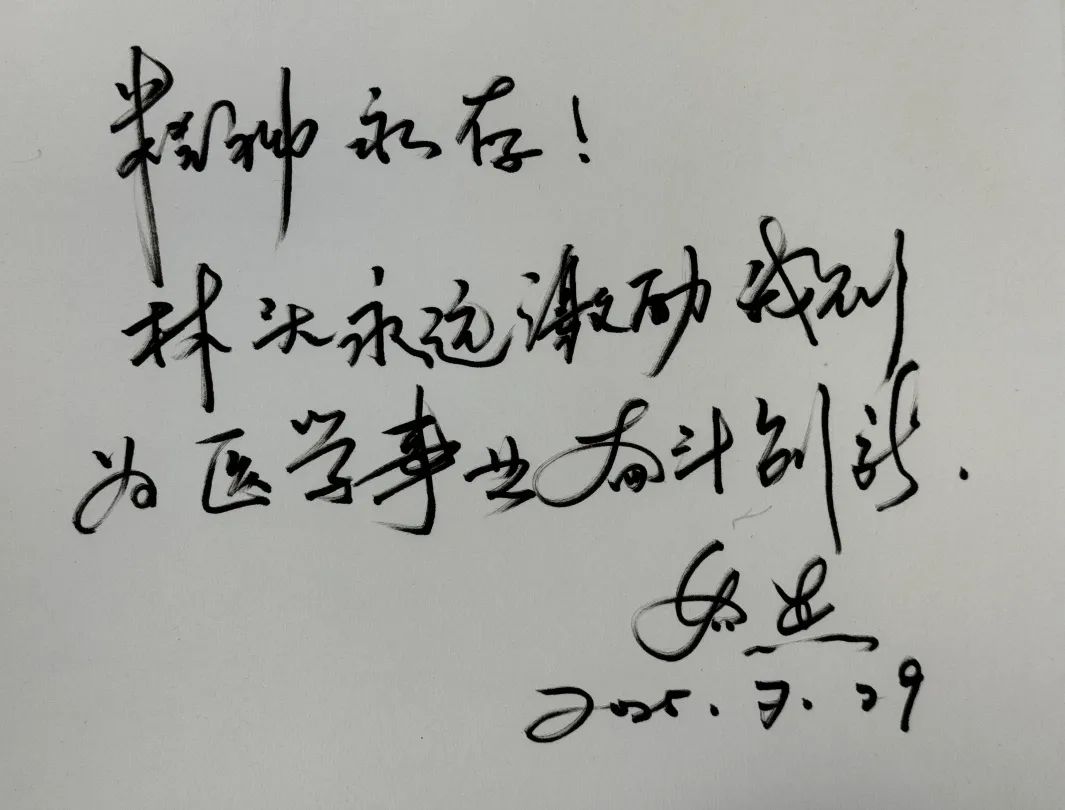 精神永存!
林头永远激励我们
为医学事业奋斗创新.
2025.7.29